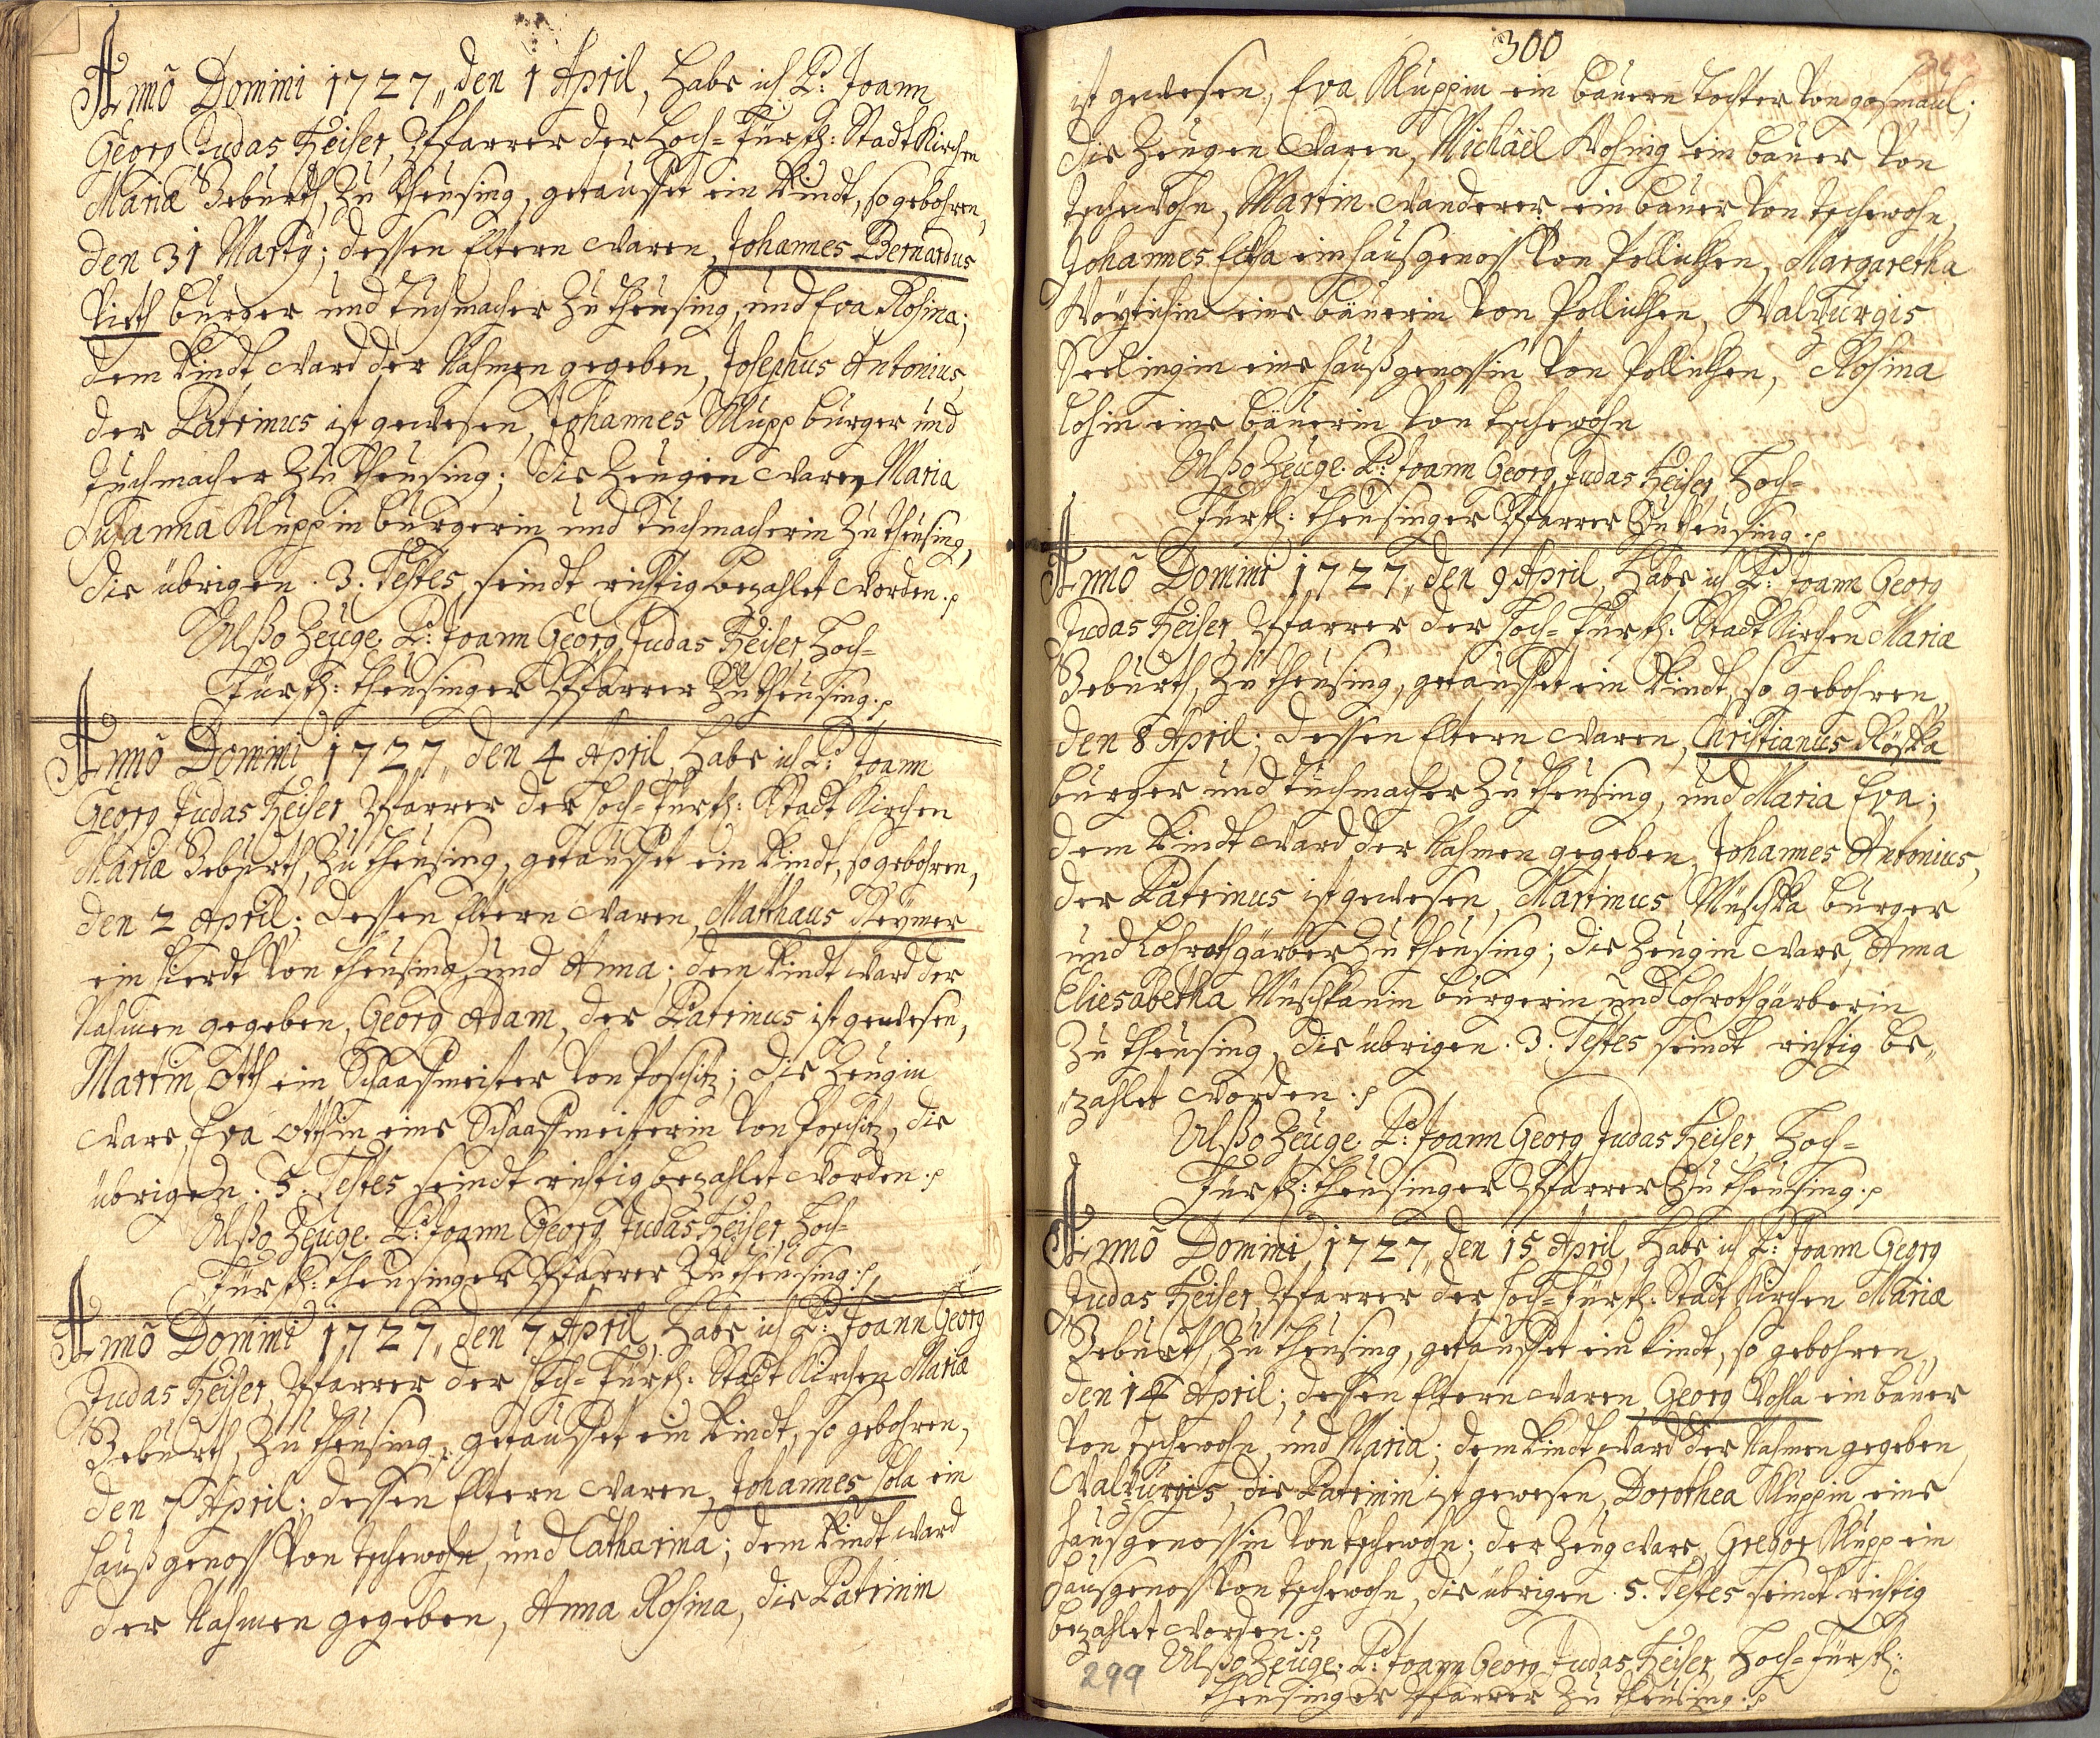 Annõ Domini 1727,, den 1 April, habe ich P: Joann
Georg Judas Heiser, Pfarrer der Hoch=Fürstl: StadtKirchen
Mariæ Geburth, zu Theusing, getauffet ein Kindt, so gebohren,
den 31 Martÿ; dessen Eltern waren, Johannes Bernardus
Burger und Tuchmacher zu Theusing, und Eva Rosina;
dem Kindt ward der Nahmen gegeben, Josephus Antonius,
der Patrinus ist gewesen, Johannes Klupp burger und
Tuchmacher zu Theusing; die Zeugin ware, Maria
Susanna Kluppin burgerin und Tuchmacherin zu Theusing,
die übrigen . 3 . Testes, seindt richtig bezahlet worden.
Alßo Zeuge. P: Joann Georg Judas Heiser, Hoch=
Fürstl: Theusinger Pfarrer zu Theusing.
Annõ Domini 1727,, den 4 April, habe ich P: Joann
Georg Judas Heiser, Pfarrer der Hoch=Fürstl: Stadt Kirchen
Mariæ Geburth, zu Theusing, getauffet ein Kindt, so gebohren,
den 2 April; dessen Eltern waren, Matthæus Seÿmer
ein Hierdt von Theusing, und Anna; dem Kindt ward der
Nahmen gegeben, Georg Adam, der Patrinus ist gewesen,
Martin Otth ein Schaaffmeister von Poschitz; die Zeugin
ware, Eva Otthin eine Schaaffmeisterin von Poschitz, die
übrigen . 5 . Testes seindt richtig bezahlet worden.
Alßo Zeuge. P: Joann Georg Judas Heiser, Hoch=
Fürstl: Theusinger Pfarrer zu Theusing.
Annõ Domini 1727,, den 7 April, habe ich P: Joann Georg
Judas Heiser, Pfarrer der Hoch=Fürstl: Stadt Kirchen Mariæ
Geburth, zu Theusing, getauffet ein Kindt, so gebohren,
den 7 April; dessen Eltern waren, Johannes ein
Haußgenoss von Tschewohn, und Catharina; dem Kindt ward
der Nahmen gegeben, Anna Rosina, die Patrinin
300
ist gewesen, Eva Kluppin ein bauern Tochter von
die Zeugen waren, Michäel ein bauer von
Tschewohn, Martin Wanderer ein bauer von Tschewohn,
Johannes ein Hausgenoss von Pollikhen, Margaretha
eine bäuerin von Pollikhen, Walburgis
Seelingin eine Haußgenossin von Pollikhen, Rosina
Losin eine bäuerin von Tschewohn
Alßo Zeuge. P: Joann Georg Judas Heiser, Hoch=
Fürstl: Theusinger Pfarrer zu Theusing.
Annõ Domini 1727,, den 9 April, habe ich P: Joann Georg
Judas Heiser, Pfarrer der Hoch=Fürstl: Stadt Kirchen Mariæ
Geburth, zu Theusing, getauffet ein Kindt, so gebohren,
den 8 April; dessen Eltern waren, Christianus Röska
burger und Tuchmacher zu Theusing, und Maria Eva;
dem Kindt ward der Nahmen gegeben, Johannes Antonius,
der Patrinus ist gewesen, Martinus Müschka burger
und Lohrothgärber zu Theusing; die Zeugin ware, Anna
Eliesabetha Müschkanin burgerin und Lohrothgärberin
zu Theusing, die übrigen . 3 . Testes seindt richtig be,,
,,zahlet worden.
Alßo Zeuge. P: Joann Georg Judas Heiser, Hoch=
Fürstl: Theusinger Pfarrer zu Theusing.
Annõ Domini 1727,, den 15 April, habe ich P: Joann Georg
Judas Heiser, Pfarrer der Hoch=Fürstl: Stadt Kirchen Mariæ
Geburth, zu Theusing, getauffet ein Kindt, so gebohren,
den 14 April; dessen Eltern waren, Georg ein bauer
von Tschewohn, und Maria; dem Kindt ward der Nahmen gegeben,
Walburgis, die Patrinin ist gewesen, Dorothea Kluppin eine
Hausgenossin von Tschewohn; der Zeug ware, Gregor Klupp ein
Hausgenoss von Tschewohn, die übrigen . 5 . Testes seindt richtig
bezahlet worden.
299
Alßo Zeuge. P: Joann Georg Judas Heiser, Hoch=Fürstl:
Theusinger Pfarrer zu Theusing.